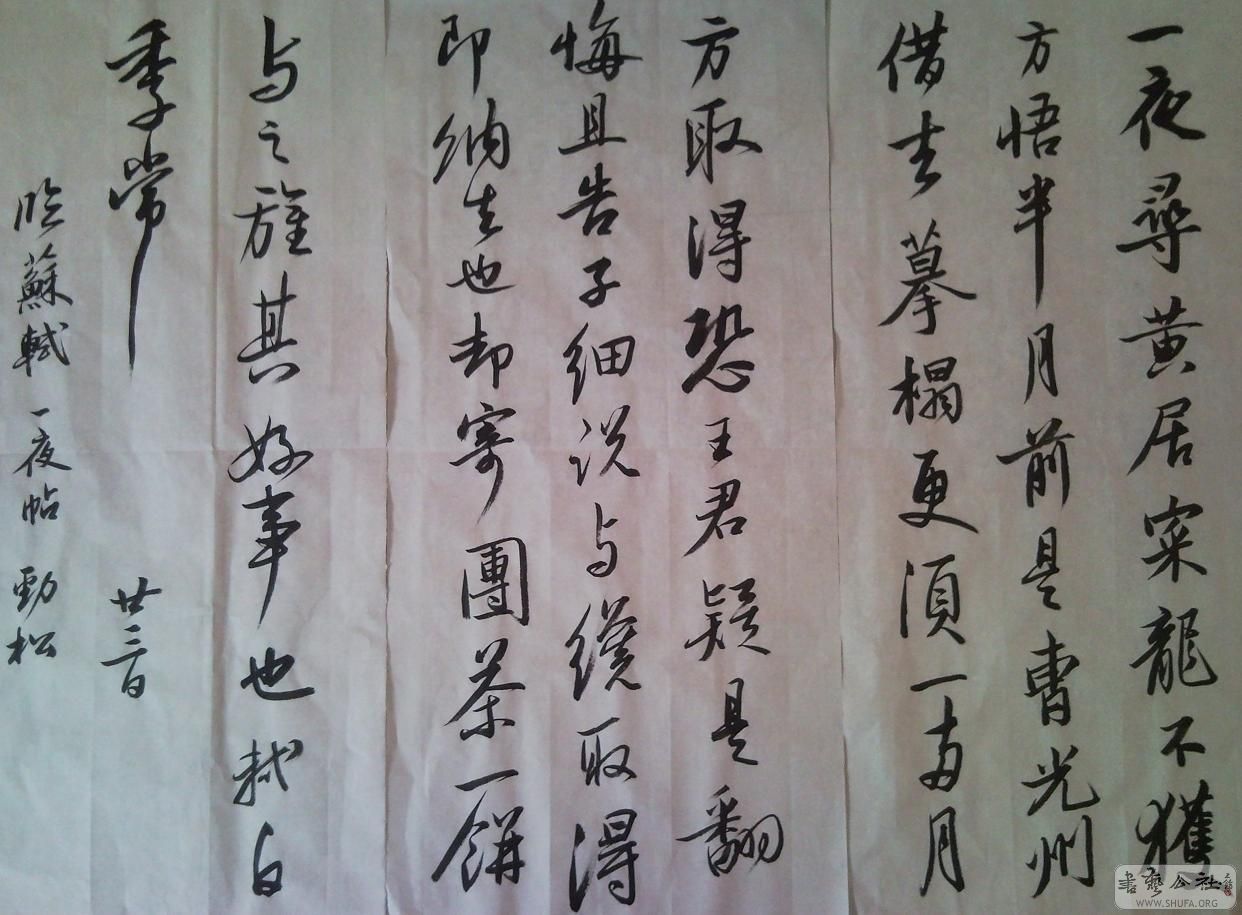 一夜尋黄居寀龍不獲
方悟半月前是曹光州
借去摹榻更須一两月
方取得恐王君疑是翻
悔且告子细说与纔取得
即纳去也却寄團茶一餅
与之旌其好事也轼白
季常
廿三日
临蘇軾一夜帖 勁松
書藝公社
WWW.SHUFA.ORG